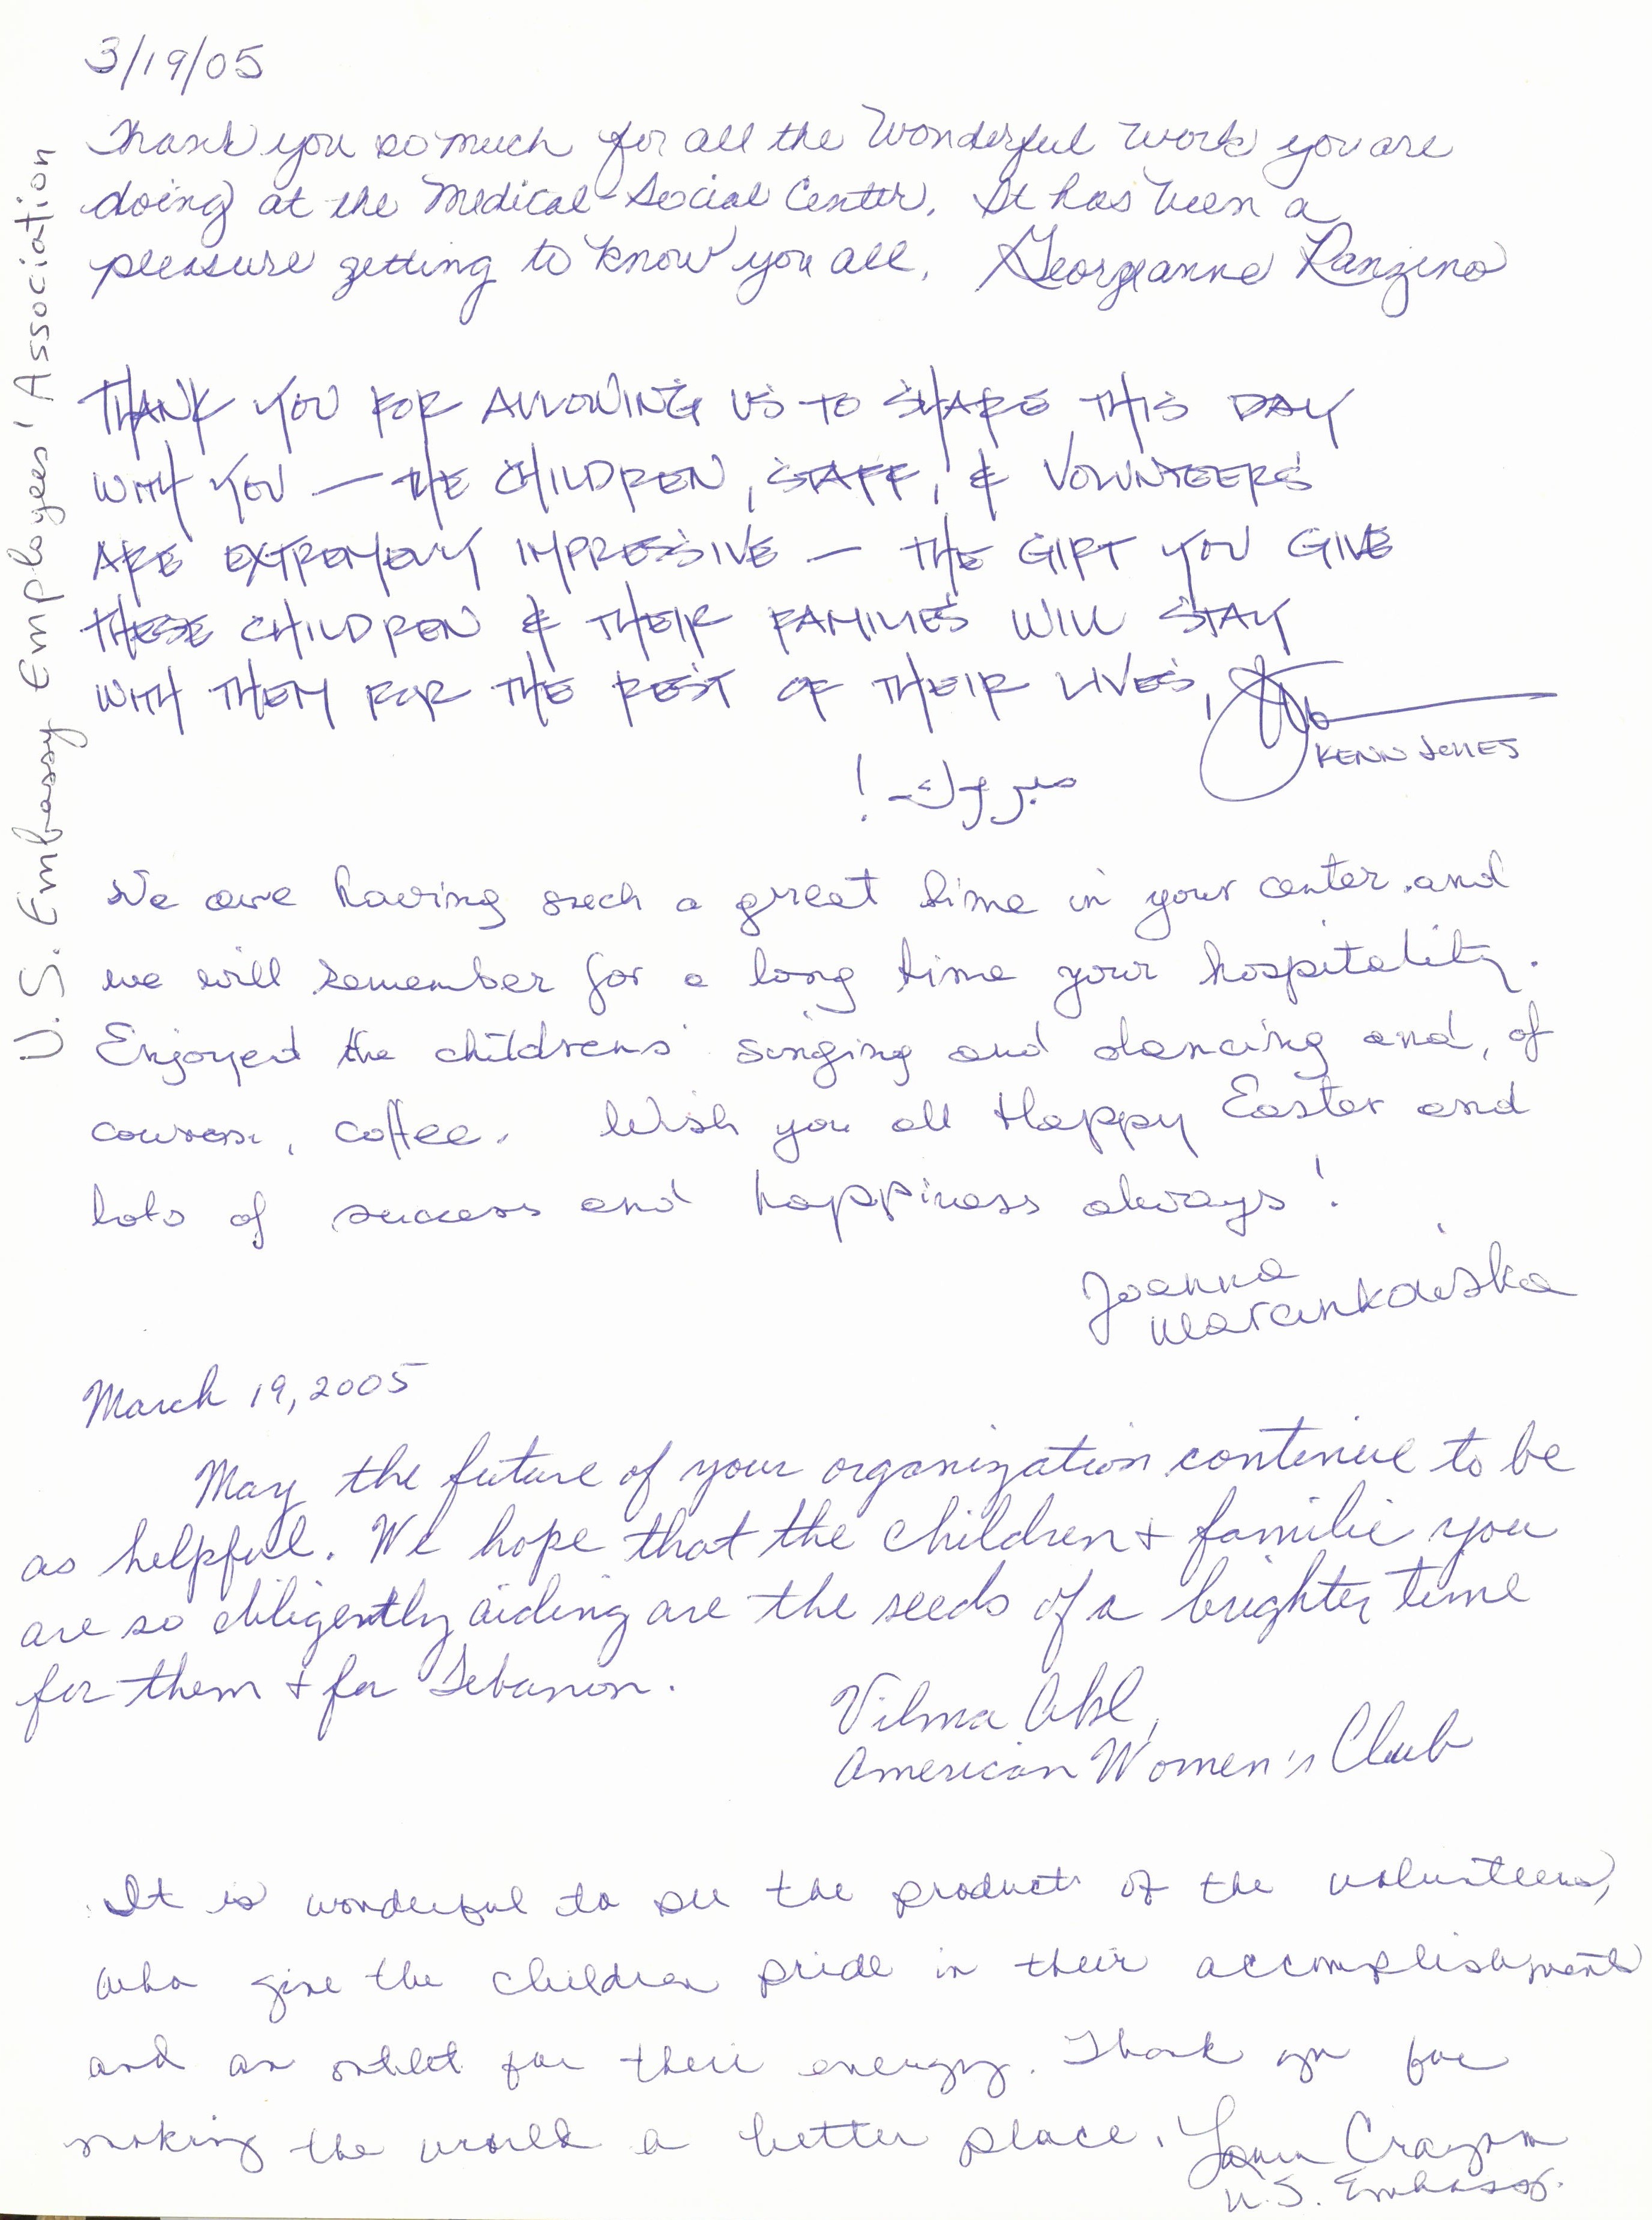 3/19/05
Thank you so much for all the wonderful work you are
doing at the Medical-Social Center. It has been a
pleasure getting to know you all. Georgeanne Ranzino
U.S. Embassy Employees' Association
THANK YOU FOR ALLOWING US TO SHARE THIS DAY
WITH YOU — THE CHILDREN, STAFF, & VOLUNTEERS
ARE EXTREMELY IMPRESSIVE — THE GIFT YOU GIVE
THESE CHILDREN & THEIR FAMILIES WILL STAY
WITH THEM FOR THE REST OF THEIR LIVES,
KENN JONES
مبروك !
We are having such a great time in your center and
we will remember for a long time your hospitality.
Enjoyed the childrens' singing and dancing and, of
course, coffee. Wish you all Happy Easter and
lots of success and happiness always!
Joanna
Marcinkowska
March 19, 2005
May the future of your organization continue to be
as helpful. We hope that the children + familie you
are so diligently aiding are the seeds of a brighter time
for them + for Lebanon.
Vilma Akl,
American Women's Club
It is wonderful to see the products of the volunteers,
who give the children pride in their accomplishments
and an outlet for their energy. Thank you for
making the world a better place.
U.S. Embassy.